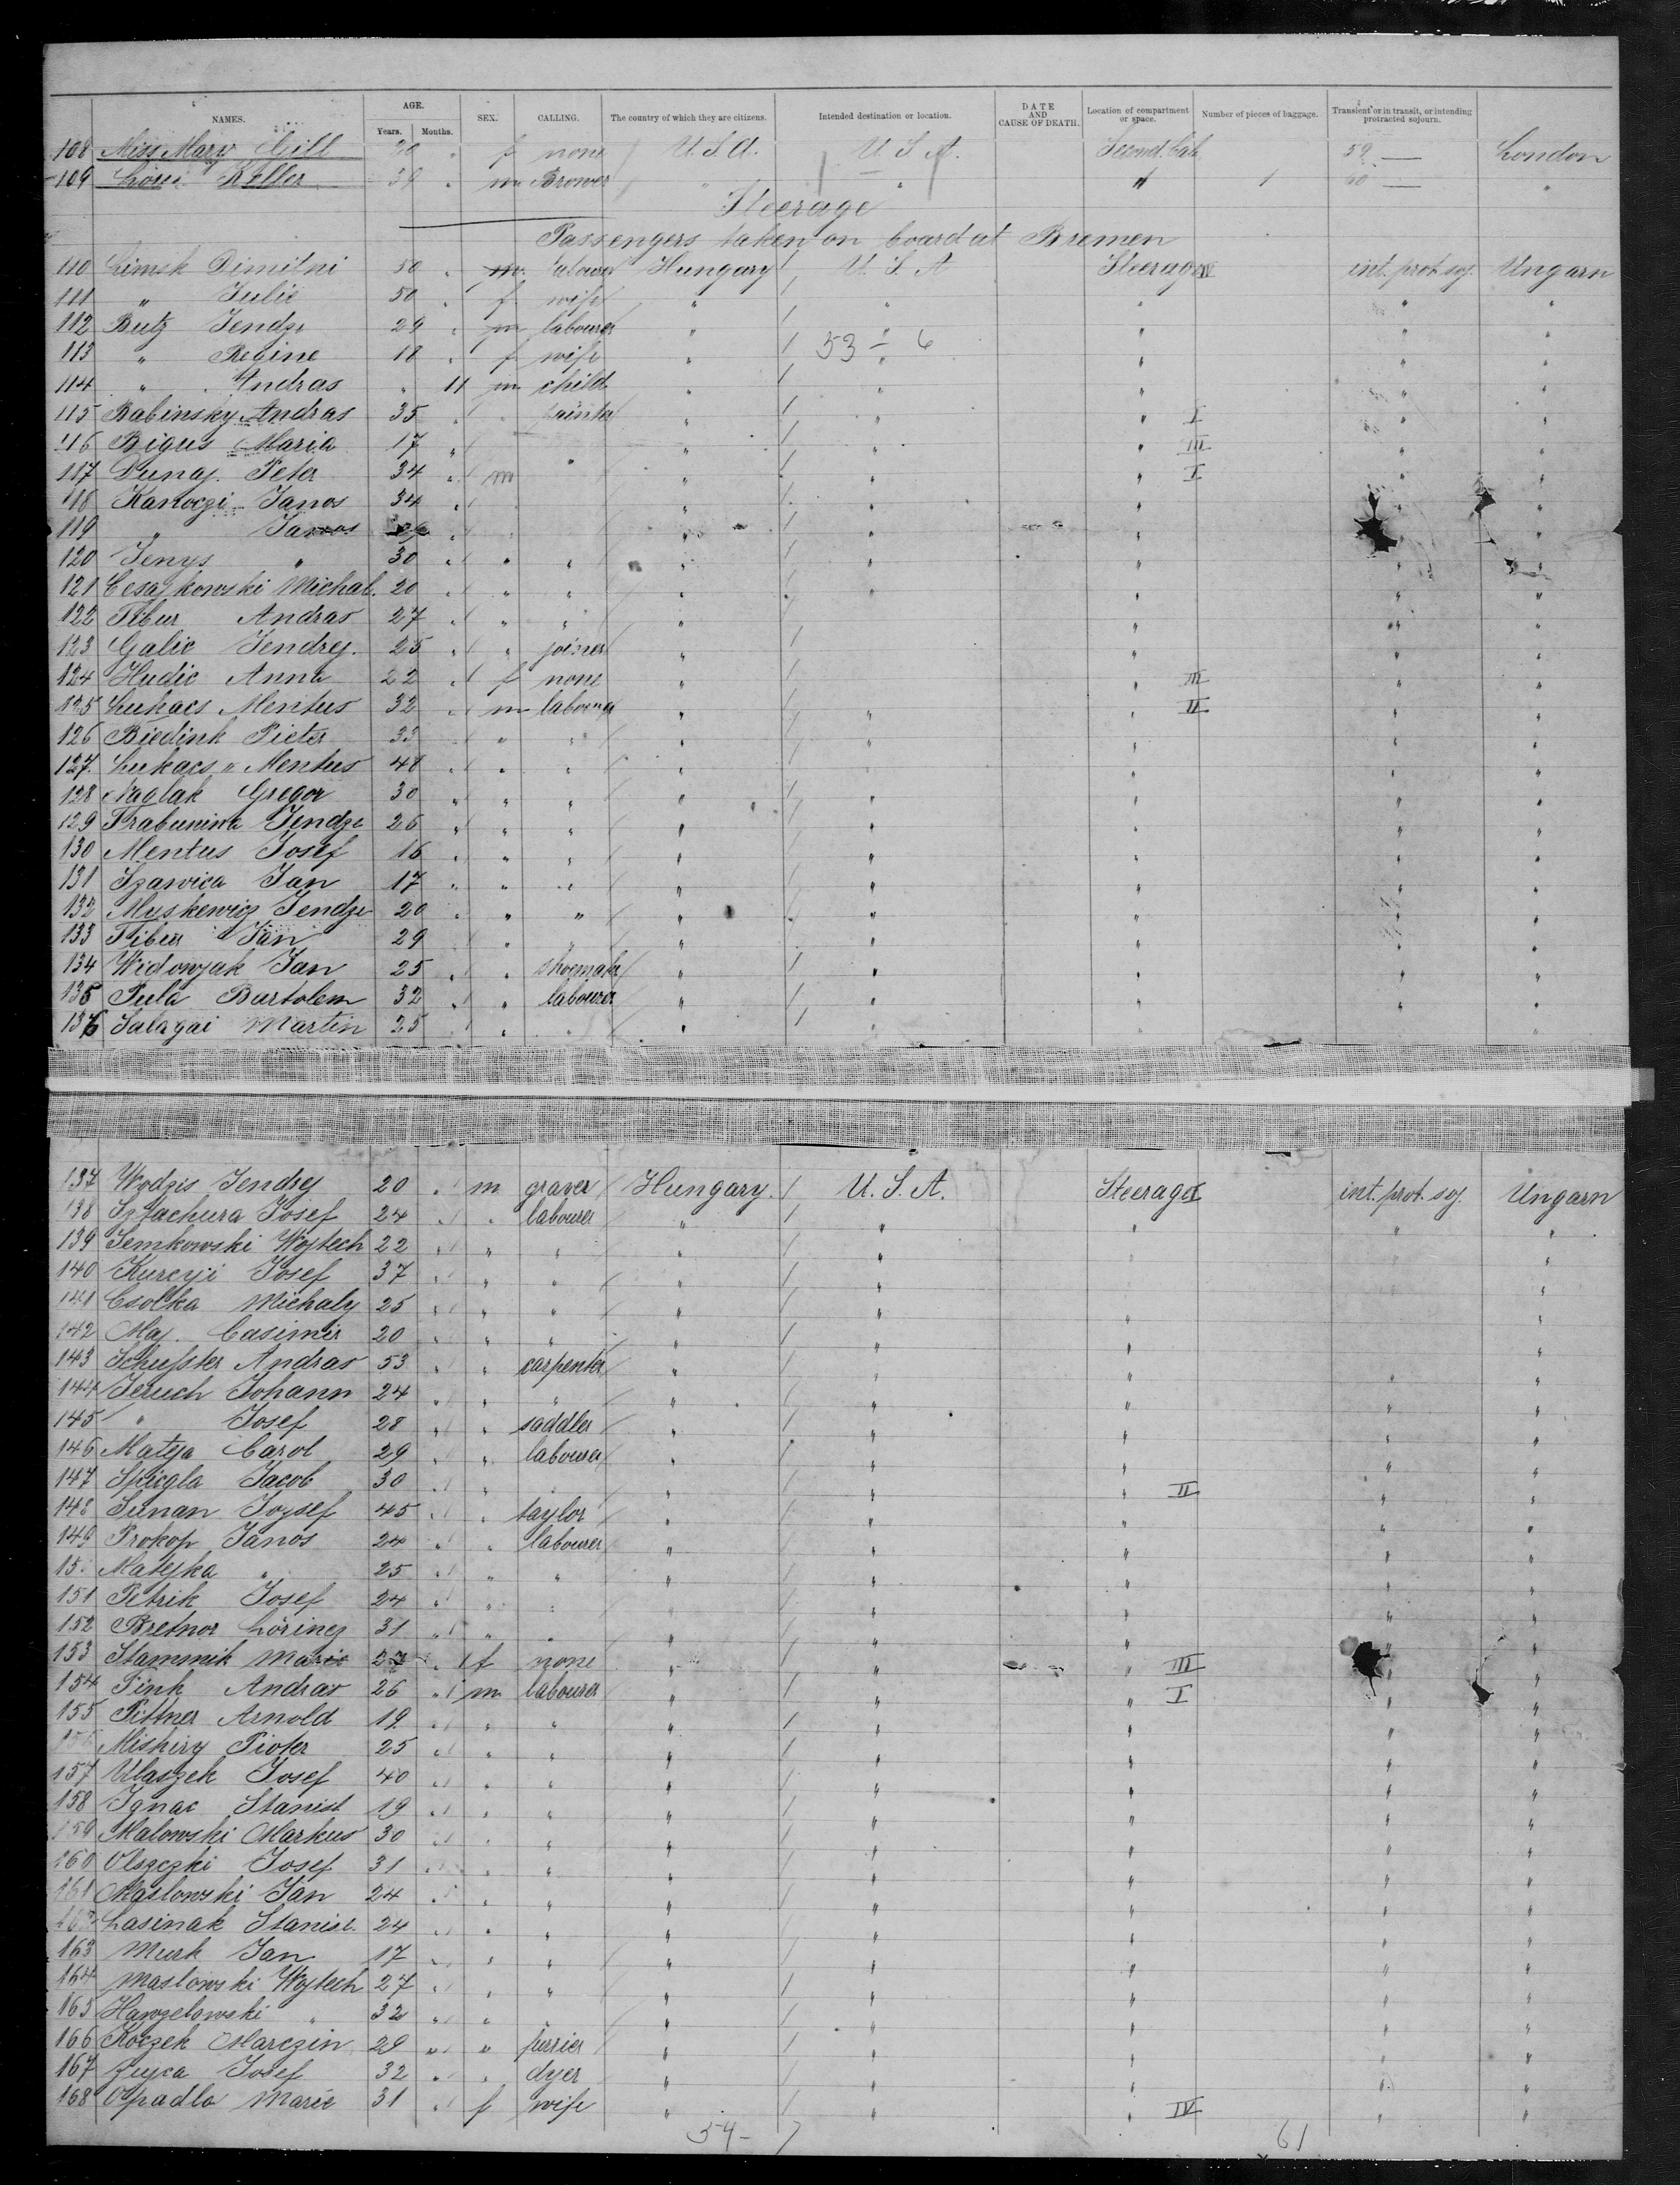 NAMES. AGE. Years. Months. SEX. CALLING. The country of which they are citizens. Intended destination or location. DATE AND CAUSE OF DEATH. Location of compartment or space. Number of pieces of baggage. Transient or in transit, or intending protracted sojourn.
108 Miss Mary Gill 20 " f none U.S.A. U.S.A. Second Cab 59 — London
109 Louis Köller 39 " m Brower " " " 1 60 — "
Steerage
Passengers taken on board at Bremen
110 Limsk Dimitni 50 " m labourer Hungary U.S.A Steerage IV int. prot. soj. Ungarn
111 " Julie 50 " f wife " " " " "
112 Butz Jendze 29 " m labourer " " " " "
113 " Regine 18 " f wife " 53-6 " " " "
114 " Andras " 11 m child " " " " "
115 Babinsky Andras 35 " " painter " " " I " "
116 Bigus Maria 17 " " " " III " "
117 Dunaj Peter 34 " m " " " I " "
118 Kanoczi Janos 34 " " " " " "
119 " Janos " " " " " "
120 Jenys " 30 " " " " " " " "
121 Cesajkowski Michal. 20 " " " " " " " "
122 Tibur Andras 27 " " " " " " "
123 Galic Jendrej. 25 " " joiner " " " "
124 Hudic Anna 22 " f none " " III " "
125 Lukacs Mentus 32 " m labourer " " " II " "
126 Biedink Pieter 33 " " " " " " " "
127. Lukacs " Mentus 48 " " " " " " "
128 Naglak Gregor 30 " " " " " " " "
129 Trabuniwa Jendze 26 " " " " " " " "
130 Mentus Josef 16 " " " " " " " "
131 Szawica Jan 17 " " " " " " " "
132 Muskewicz Jendze 20 " " " " " " " "
133 Tibur Jan 29 " " " " " " " "
134 Widowjak Jan 25 " " shoemak " " " " "
135 Pula Bartolem 32 " " labourer " " " " "
136 Salagai Martin 25 " " " " " " "
137 Wodzis Jendrej 20 " m graver Hungary. U.S.A. Steerage I int. prot. soj. Ungarn
138 Szlachura Josef 24 " " labourer " " " " "
139 Semkowski Wojtech 22 " " " " " " "
140 Kurcyi Josef 37 " " " " " "
141 Csolka Michaly 25 " " " " " " "
142 Maj. Casimir 20 " " " " " " "
143 Schufster Andras 53 " " carpenter " " " "
144 Jeruch Johann 24 " " " " " " " "
145 " Josef 28 " " saddler " " " " "
146 Mateja Carol 29 " " labourer " " " " "
147 Spiegla Jacob 30 " " " " " II " "
148 Junan Jozsef 45 " " taylor " " " " "
149 Prokop Janos 24 " " labourer " " " " "
15 Matejka " 25 " " " " " " " "
151 Petrik Josef 24 " " " " " " " "
152 Bretnor Lörincz 31 " " " " " " " "
153 Stammik Marie " f none " " " III " "
154 Fink Andras 26 " m labourer " " " I " "
155 Pittner Arnold 19 " " " " " " " "
156 Mishiry Pioter 25 " " " " " " " "
157 Ulaszek Josef 40 " " " " " " " "
158 Ignac Stanisl 19 " " " " " " " "
159 Malowski Markus 30 " " " " " " " "
160 Olszczki Josef 31 " " " " " " " "
161 Maslowski Jan 24 " " " " " " " "
162 Lasinak Stanisl. 24 " " " " " " " "
163 Murk Jan 17 " " " " " " " "
164 Maslowski Wojtech 27 " " " " " " " "
165 Hawzelowski " 32 " " " " " " " "
166 Koczek Marczin 29 " " furrier " " " " "
167 Zujca Josef 32 " " dyer " " " " "
168 Opadla Marie 31 " f wife " " " IV " "
54-7 61